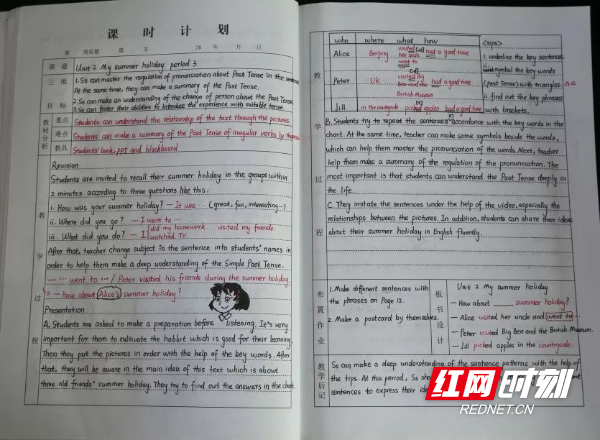 课 时 计 划
第 周星期 第 节 20 年 月 日
课 题 Unit 2 My summer holiday period 3
三维目标
1. Ss can master the regulation of pronunciation about Past Tense in the sentence.
At the same time, they can make a summary of the Past Tense.
2. Ss can make an understanding of the change of person about the Past Tense.
3. Ss can foster their abilities to introduce the experience with suitable tense.
教材分析
重点 Students can understand the relationship of the text through the pictures.
难点 Students can make a summary of the Past Tense of irregular verbs by themselves
教具 Students' book, PPT and blackboard
教 学 过 程
Revision
Students are invited to recall their summer holiday in the groups within
2 minutes according to three questions like this:
i. How was your summer holiday? — It was ... (great, fun, interesting...)
ii. Where did you go? — I went to ...
iii. What did you do? — I did my homework visited my friends
watched TV
After that, teacher change subject in the sentence into students' names in
order to help them make a deep understanding of the Simple Past Tense.
— ... went to ... / Peter visited his friends during the summer holiday
— How about Alice's summer holiday?
Presentation
A. Students are asked to make a preparation before listening. It's very
important for them to cultivate the habbit which is good for their learning.
Then they put the pictures in order with the help of the key words. After
that, they will be aware in the main idea of this text which is about
three old friends' summer holiday. They try to find out the answers in the chart.
教 学 过 程
who where what how
Alice Beijing visited her uncle had a good time
went to
Peter UK visited Big Ben had a good time
British Museum
Jill in the countryside picked apples had a good time
<tips>
i. underline the key sentences
symbol the key words
(Past Tense) with triangles △△
ii. find out the key phrases
with brackets.
B. Students try to repeat the sentences in accordance with the key words in the
chart. At the same time, teacher can make some symbols beside the words,
which can help them master the pronunciation of the words. Next, teacher
help them make a summary of the regulation of the pronunciation. The
most important is that students can understand the Past Tense deeply in
the life.
C. They imitate the sentences under the help of the video, especially the
relationships between the pictures. In addition, students can share their ideas
about their summer holiday in English fluently.
布置作业
1. Make different sentences with
the phrases on Page 12.
2. Make a postcard by themselves.
板书设计
Unit 2 My summer holiday
— How about ____ summer holiday?
— Alice visited her uncle and went to
— Peter visited Big Ben and the British Museum.
— Jill picked apples in the countryside.
教学后记
Ss can make a deep understanding of the sentence patterns with the help of
the tips. At this period, Ss
sentences to express their
红网时刻
REDNET.CN